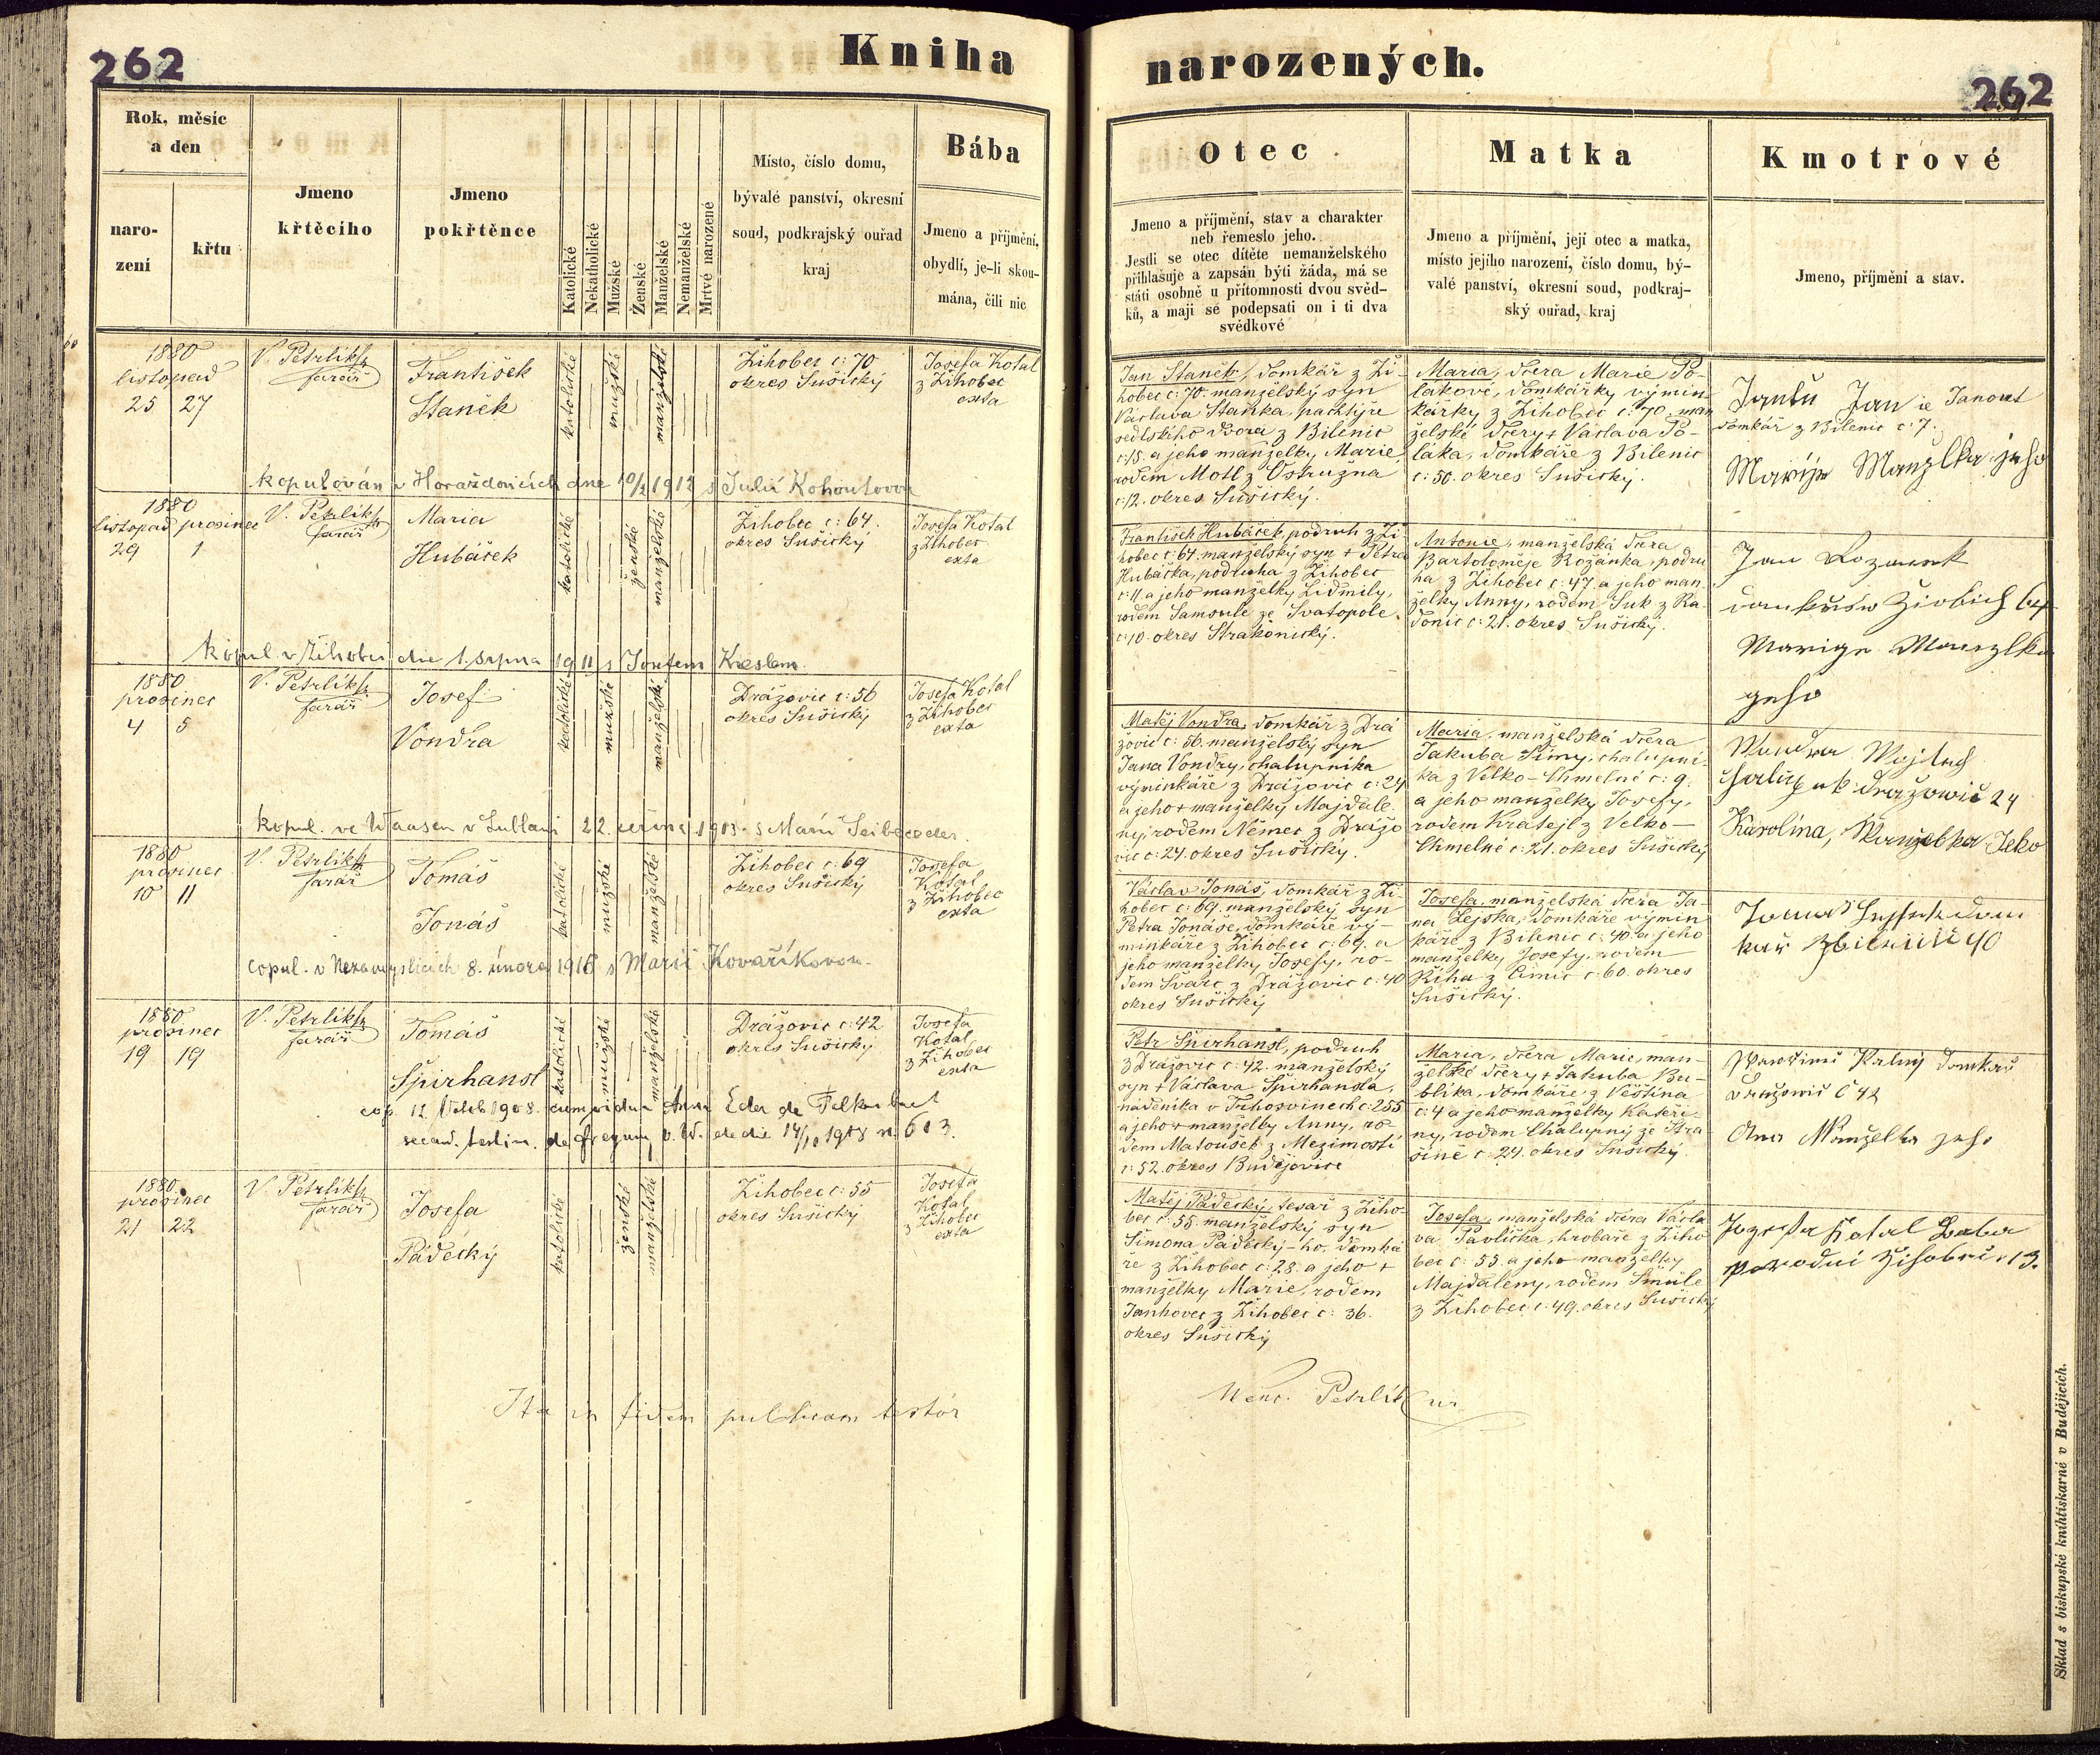 262
Kniha
narozených.
262
Rok, měsíc
a den
naro-
zení
křtu
Jmeno
křtěcího
Jmeno
pokřtěnce
Katolické
Nekatholické
Mužské
Ženské
Manželské
Nemanželské
Mrtvé narozené
Místo, číslo domu,
bývalé panství, okresní
soud, podkrajský ouřad
kraj
Bába
Jmeno a příjmění,
obydlí, je-li skou-
mána, čili nic
Otec
Jmeno a příjmění, stav a charakter
neb řemeslo jeho.
Jestli se otec dítěte nemanželského
přihlašuje a zapsán býti žáda, má se
státi osobně u přítomnosti dvou svěd-
ků, a mají se podepsati on i ti dva
svědkové
Matka
Jmeno a příjmění, její otec a matka,
místo jejího narození, číslo domu, bý-
valé panství, okresní soud, podkraj-
ský ouřad, kraj
Kmotrové
Jmeno, příjmění a stav.
1880
listopad
25 27
V. Petrlík
farář
František
Staněk
katolické
mužské
manželské
Žihobec č: 70
okres Sušický
Josefa Kotal
z Žihobec
exta
Jan Staněk, domkář z Ži-
hobec č: 70. manželský syn
Václava Staňka, pachtýře
sedlského dvora z Bílenic
č: 15. a jeho manželky Marie
rodem Motl z Ostružna
č: 12. okres Sušický.
Maria, dcera Marie Po-
lákové, domkářky výmin-
kářky z Žihobec č: 70. man
želské dcery + Václava Po-
láka, domkáře z Bílenic
č: 50. okres Sušický.
Jan je Janout
domkář z Bílenic č: 7.
Marije Manzlka jeho
kopulován v Horažďovicích dne 10/2 1912 s Julií Kohoutovou
1880
listopad prosinec
29 1
V. Petrlík
farář
Maria
Hubáček
katolické
ženské
manželské
Žihobec č: 64.
okres Sušický
Josefa Kotal
z Žihobec
exta
František Hubáček, podruh z Ži-
hobec č: 64. manželský syn + Petra
Hubáčka, podruha z Žihobec
č: 11 a jeho manželky Lidmily,
rodem Samsule ze Svatopole
č: 10. okres Strakonický.
Antonie, manželská dcera
Bartoloměje Rožánka, podru
ha z Žihobec č: 47. a jeho man
želky Anny, rodem Suk z Ra-
donic č: 21. okres Sušický.
Jan
64
Marige Manzlka
geho
kopul. v Žihobci dne 1. srpna 1911 s Josefem Kreslem.
1880
prosinec
4 5
V. Petrlík
farář
Josef
Vondra
katolické
mužské
manželské
Drážovic č: 56
okres Sušický
Josefa Kotal
z Žihobec
exta
Matěj Vondra, domkář z Drá
žovic č: 56. manželský syn
Jana Vondry, chalupníka
výminkáře z Drážovic č: 24
a jeho + manželky Majdale
ny, rodem Němec z Drážo
vic č: 24. okres Sušický.
Maria, manželská dcera
Jakuba Šímy, chalupní-
ka z Velko-Chmelné č: 9.
a jeho manželky Josefy,
rodem Kratejl z Velko-
Chmelné č: 21. okres Sušický
Wondra Wojtech
drazowic 24
Karolina, Manzelka Jeho
kopul. ve Waasen v Lublani 22. června 1903. s Marií
1880
prosinec
10 11
V. Petrlík
farář
Tomáš
Jonáš
katolické
mužské
manželské
Žihobec č: 69
okres Sušický
Josefa
Kotal
z Žihobec
exta
Václav Jonáš, domkář z Ži-
hobec č: 69. manželský syn
Petra Jonáše, domkáře vý-
minkáře z Žihobec č: 69. a
jeho manželky Josefy, ro-
dem Švarc z Drážovic č: 40
okres Sušický
Josefa, manželská dcera Ja-
na Lejska, domkáře výmin
káře z Bílenic č: 40. a jeho
manželky Josefy, rodem
Říha z Čímic č: 60. okres
Sušický.
Tomaš dom
kař 40
copul. v Nezamyslicích 8. února 1916 s Marií Kovaříkovou.
1880
prosinec
19 19
V. Petrlík
farář
Tomáš
Špirhansl
katolické
mužské
manželské
Drážovic č: 42
okres Sušický
Josefa
Kotal
z Žihobec
exta
Petr Špirhansl, podruh
z Drážovic č: 42. manželský
syn + Václava Špirhansla,
nádeníka v Trhosvinech č: 255
a jeho + manželky Anny, ro-
dem Matoušek z Mezimostí
č: 52. okres Budějovice
Maria, dcera Marie, man-
želské dcery + Jakuba Bu-
blíka, domkáře z Věštína
č: 4 a jeho manželky Kateři-
ny, rodem Chalupný ze Stra-
šíně č: 24. okres Sušický.
Domkař
č 42
Ana Manzelka jeho
cop. 12 Octob 1908. cum vidua Anna Eder de
secund. testim. de die 14/10 1908 n. 603.
1880
prosinec
21 22
V. Petrlík
farář
Josefa
Pádecký
katolické
ženské
manželské
Žihobec č: 55
okres Sušický
Josefa
Kotal
z Žihobec
exta
Matěj Pádecký, tesař z Žiho-
bec č: 55. manželský syn
Šimona Pádecký-ho, domká
ře z Žihobec č: 28. a jeho +
manželky Marie, rodem
Janhovec z Žihobec č: 36.
okres Sušický
Josefa, manželská dcera Václa
va Pavlíčka, hrobaře z Žiho
bec č: 55. a jeho manželky
Majdaleny, rodem Smule
z Žihobec č: 49. okres Sušický
Jozefa Kotal Baba
porodní Žihobec č 13.
Ita in fidem publicam testor
Wenc. Petrlík
Sklad s biskupské knihtiskarně v Budějicích.